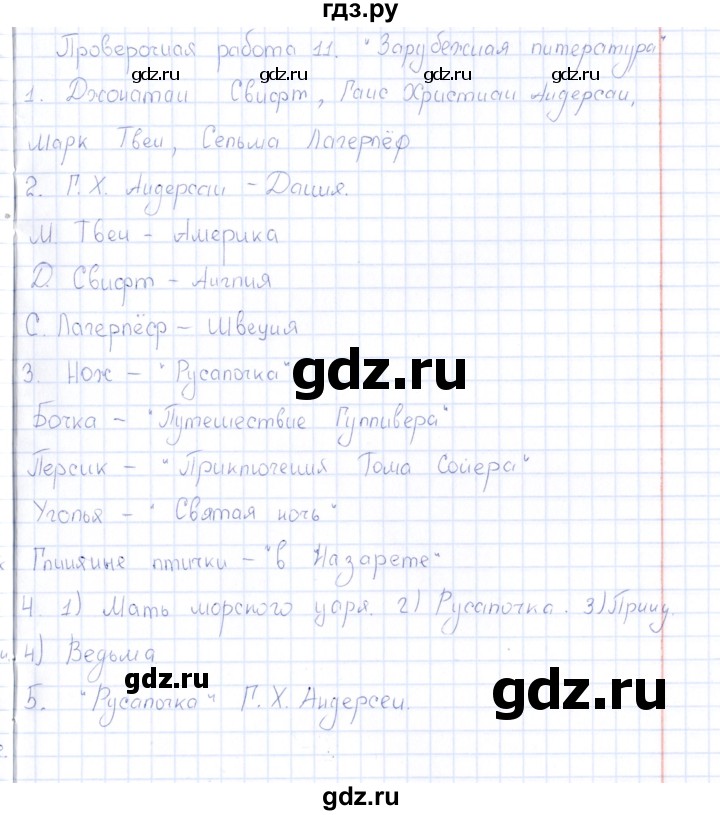 гдз.ру
Проверочная работа 11. "Зарубежная литература"
gdz.ru gdz.ru gdz.ru
1. Джонатан Свифт, Ганс Христиан Андерсан,
Марк Твен, Сельма Лагерлёф
2. Г. Х. Андерсан - Дания.
М. Твен - Америка
Д. Свифт - Англия
С. Лагерлёф - Швеция
3. Нож - "Русалочка"
gdz.ru gdz.ru
Бочка - "Путешествие Гулливера"
Персик - "Приключения Тома Сойера"
Уголья - "Святая ночь"
Глиняные птички - "в Назарете"
4. 1) Мать морского царя. 2) Русалочка. 3) Принц.
4) Ведьма
gdz.ru gdz.ru
5. "Русалочка" Г. Х. Андерсен.
gdz.ru